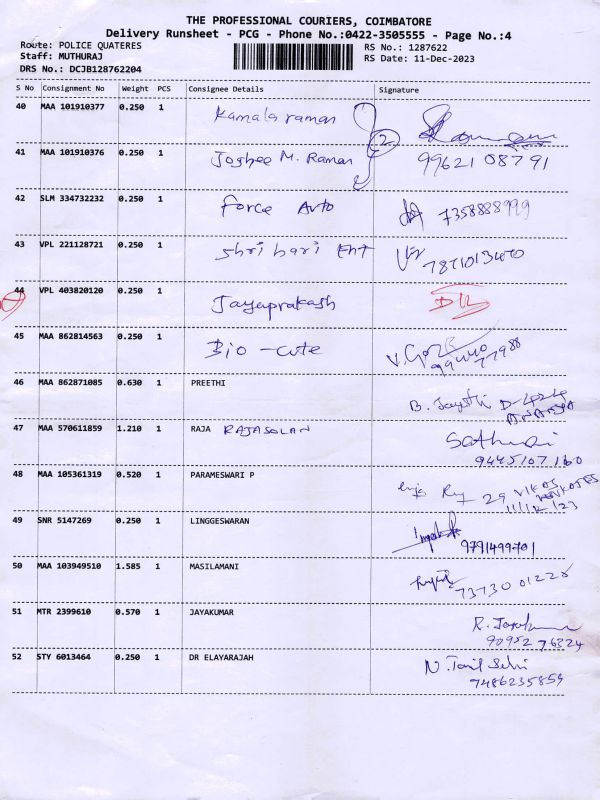 THE PROFESSIONAL COURIERS, COIMBATORE
Delivery Runsheet - PCG - Phone No.:0422-3505555 - Page No.:4
Route: POLICE QUATERES RS No.: 1287622
Staff: MUTHURAJ RS Date: 11-Dec-2023
DRS No.: DCJB128762204
S No Consignment No Weight PCS Consignee Details Signature
40 MAA 101910377 0.250 1 Kamala raman
2
41 MAA 101910376 0.250 1 Joshee M. Raman 99621 08791
42 SLM 334732232 0.250 1 Force Auto 7358888999
43 VPL 221128721 0.250 1 Shri hari Ent
44 VPL 403820120 0.250 1 Jayaprakash
45 MAA 862814563 0.250 1 Bio - cute
46 MAA 862871085 0.630 1 PREETHI B. D-424
ANANYA
47 MAA 570611859 1.210 1 RAJA RAJASOLAN
9445107160
48 MAA 105361319 0.520 1 PARAMESWARI P 29
11/12/23
49 SNR 5147269 0.250 1 LINGGESWARAN 9791499701
50 MAA 103949510 1.585 1 MASILAMANI 73730 01228
51 MTR 2399610 0.570 1 JAYAKUMAR R.
90952 76324
52 STY 6013464 0.250 1 DR ELAYARAJAH N. Tamil Selvi
7486235859